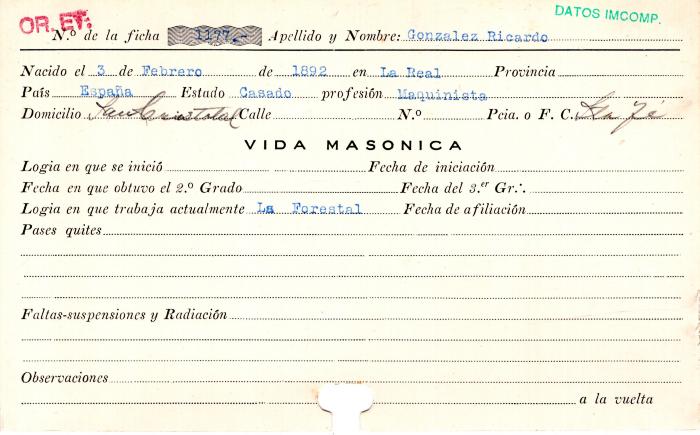 OR. ET.
DATOS IMCOMP.
N.º de la ficha 1177.- Apellido y Nombre: Gonzalez Ricardo
Nacido el 3 de Febrero de 1892 en La Real Provincia
País España Estado Casado profesión Maquinista
Domicilio San Cristobal Calle N.º Pcia. o F. C. Sta Fé
VIDA MASONICA
Logia en que se inició Fecha de iniciación
Fecha en que obtuvo el 2.º Grado Fecha del 3.er Gr.·.
Logia en que trabaja actualmente La Forestal Fecha de afiliación
Pases quites
Faltas-suspensiones y Radiación
Observaciones
a la vuelta